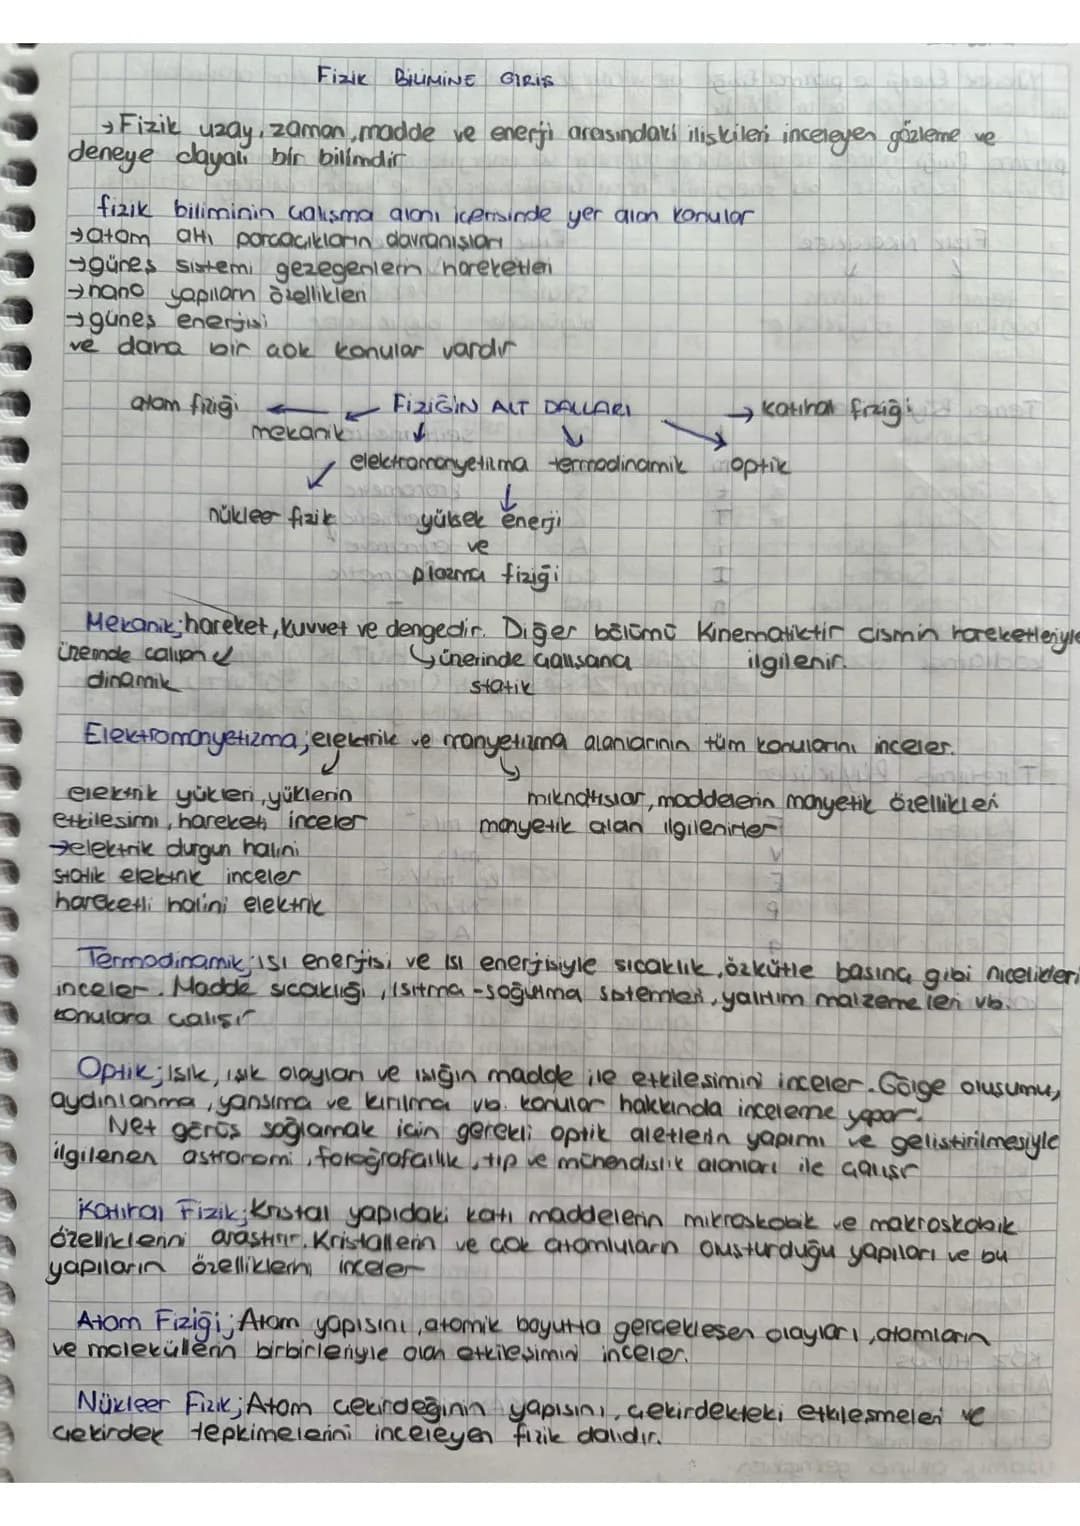 Fizik BiLiMiNE GiRiS
→Fizik uzay, zaman, madde ve enerji arasındaki iliskileri inceleyen gözleme ve
deneye dayalı bir bilimdir
fizik biliminin calısma alanı icerisinde yer alan konular
→atom altı parcacıkların davranısları
→günes sistemi gezegenlerin hareketleri
→nano yapıların özellikleri
→günes enerjisi
ve daha bir cok konular vardır
atom fiziği ← FiZiĞiN ALT DALLARI → katıhal fiziği
mekanik
elektromanyetizma termodinamik optik
nükleer fizik yüksek enerji
ve
plazma fiziği
Mekanik; hareket, kuvvet ve dengedir. Diğer bölümü Kinematiktir cismin hareketleriyle
üzerinde calısan üzerinde calısana ilgilenir.
dinamik statik
Elektromanyetizma; elektrik ve manyetizma alanlarının tüm konularını inceler.
elektrik yükleri, yüklerin mıknatıslar, maddelerin manyetik özellikleri
etkilesimi, hareketi inceler manyetik alan ilgilenirler
→elektrik durgun halini
statik elektrik inceler
hareketli halini elektrik
Termodinamik; ısı enerjisi ve ısı enerjisiyle sıcaklık, özkütle basınç gibi nicelikleri
inceler. Madde sıcaklığı, ısıtma-soğutma sistemleri, yalıtım malzemeleri vb.
konulara calısır
Optik; Isık, ısık olayları ve ısığın madde ile etkilesimini inceler. Gölge olusumu,
aydınlanma, yansıma ve kırılma vb. konular hakkında inceleme yapar.
Net görüs sağlamak icin gerekli optik aletlerin yapımı ve gelistirilmesiyle
ilgilenen astronomi, fotoğrafcılık, tıp ve mühendislik alanları ile calısır
Katıhal Fizik; Kristal yapıdaki katı maddelerin mikroskobik ve makroskobik
özelliklerini arastırır. Kristallerin ve cok atomluların olusturduğu yapıları ve bu
yapıların özelliklerini inceler
Atom Fiziği; Atom yapısını, atomik boyutta gerceklesen olayları, atomların
ve moleküllerin birbirleriyle olan etkilesimini inceler.
Nükleer Fizik; Atom cekirdeğinin yapısını, cekirdekteki etkilesmeleri ve
cekirdek tepkimelerini inceleyen fizik dalıdır.